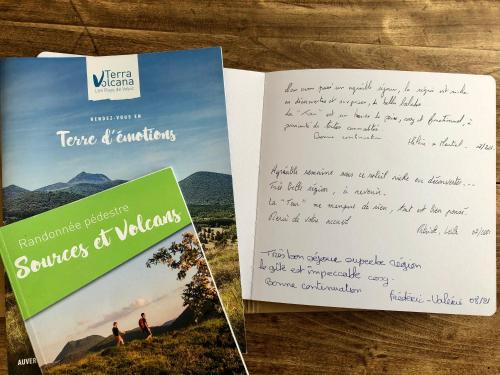 Terra
Volcana
Les Pays de Volvic
RENDEZ-VOUS EN
Terre d'émotions
Randonnée pédestre
Sources et Volcans
AUVER
Nous avons passé un agréable séjour, la région est riche
en découvertes et surprises, de belles balades
La "Tour" est un havre de paix, cosy et fonctionnel, à
proximité de toutes commodités
Bonne continuation
Agréable semaine sous ce soleil riche en découvertes...
Très belle région, à revenir.
La "Tour" ne manque de rien, tout est bien pensé.
Merci de votre accueil
Très bon séjour superbe région
le gîte est impeccable cosy
Bonne continuation
Frédéric-Valérie 08/21